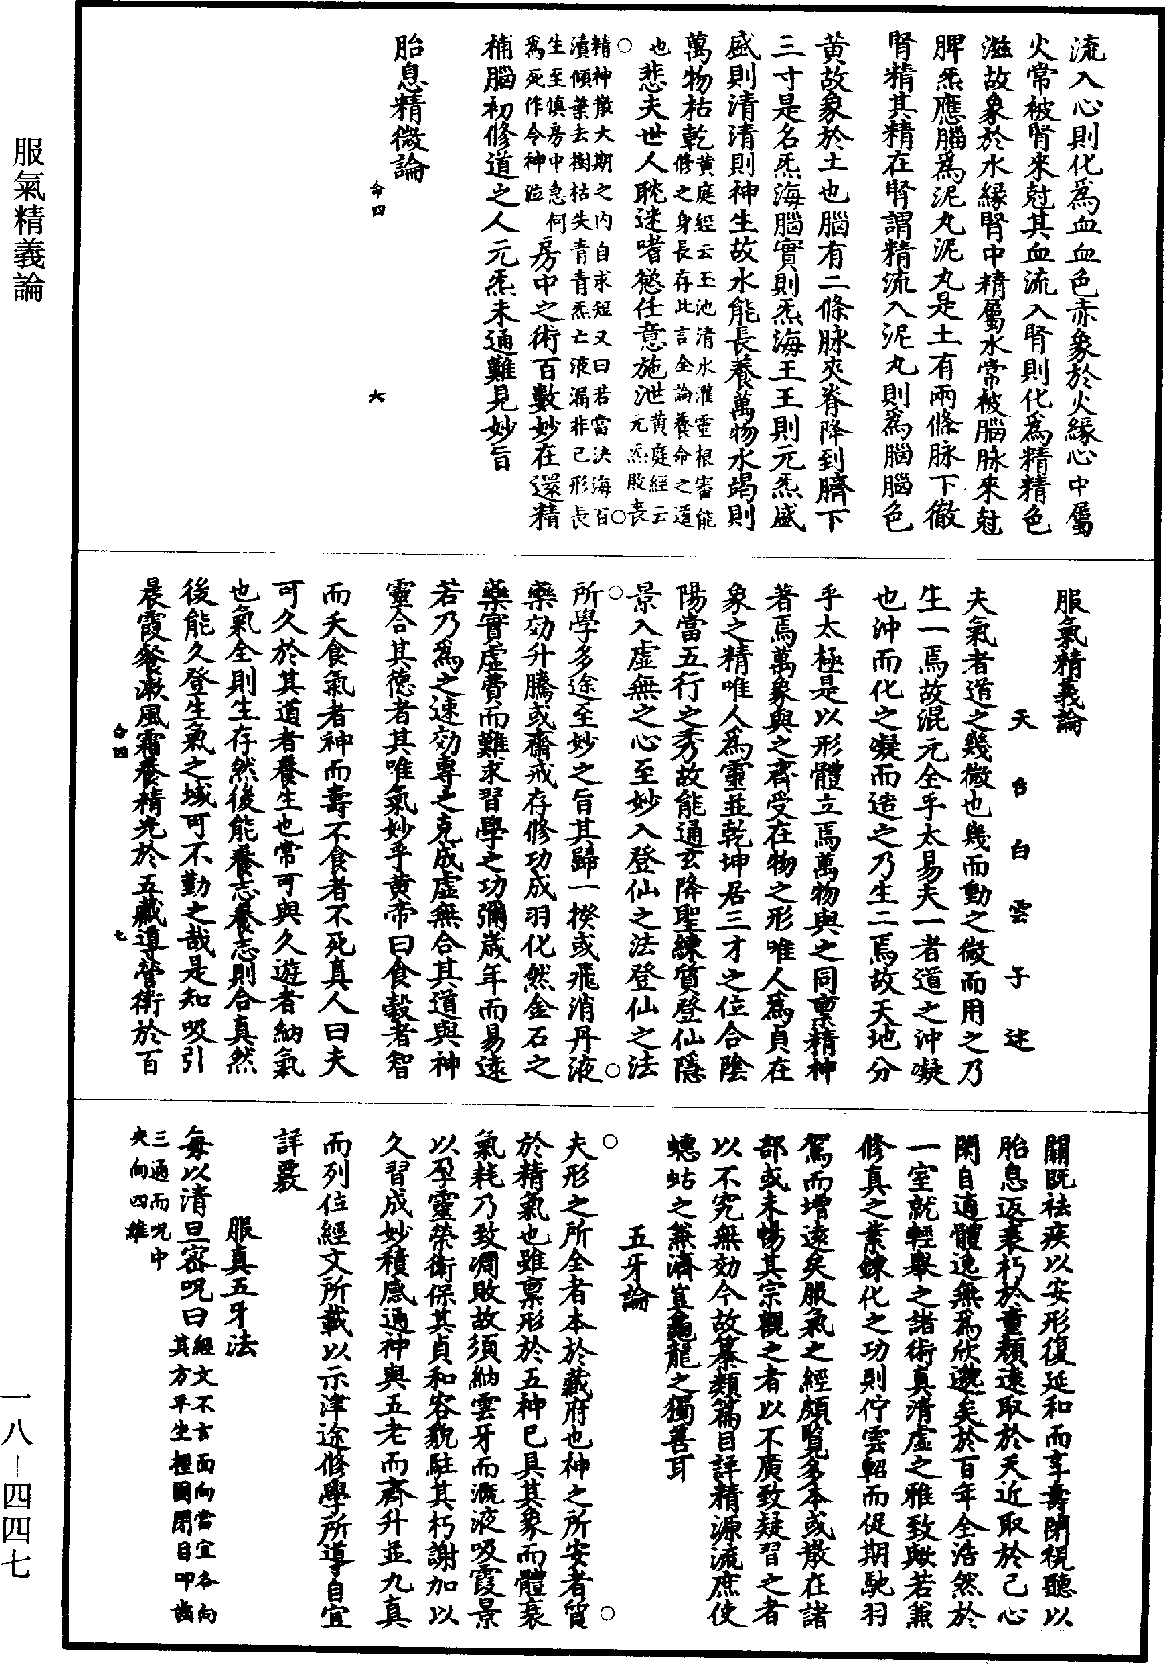 服氣精義論
一八－四四七
流入心則化為血血色赤象於火緣心中屬
火常被腎來尅其血流入腎則化為精精色
滋故象於水緣腎中精屬水常被腦脉來尅
脾炁應腦為泥丸泥丸是土有兩條脉下徹
腎精其精在腎謂精流入泥丸則為腦腦色
黃故象於土也腦有二條脉夾脊降到臍下
三寸是名炁海腦實則炁海王王則元炁盛
盛則清清則神生故水能長養萬物水竭則
萬物枯乾黃庭經云玉池清水灌靈根審能
修之身長存此言全論養命之道
也悲夫世人耽迷嗜慾任意施泄黃庭經云
元炁敗喪
精神散大期之內自求短又曰若當決海百
瀆傾葉去樹枯失青青炁亡液漏非己形長
生至慎房中急何
為死作令神泣房中之術百數妙在還精
補腦初修道之人元炁未通難見妙旨
胎息精微論
命四　六
服氣精義論
天台白雲子述
夫氣者道之幾微也幾而動之微而用之乃
生一焉故混元全乎太易夫一者道之沖凝
也沖而化之凝而造之乃生二焉故天地分
乎太極是以形體立焉萬物與之同稟精神
著焉萬象與之齊受在物之形唯人為貞在
象之精唯人為靈並乾坤居三才之位合陰
陽當五行之秀故能通玄降聖練質登仙隱
景入虛無之心至妙入登仙之法登仙之法
所學多途至妙之旨其歸一揆或飛消丹液
藥効升騰或齋戒存修功成羽化然金石之
藥實虛費而難求習學之功彌歲年而易遠
若乃為之速効專之克成虛無合其道與神
靈合其德者其唯氣妙乎黃帝曰食穀者智
而夭食氣者神而壽不食者不死真人曰夫
可久於其道者養生也常可與久遊者納氣
也氣全則生存然後能養志養志則合真然
後能久登生氣之域可不勤之哉是知吸引
晨霞餐漱風霜養精光於五藏導營衛於百
命四　七
關既祛疾以安形復延和而享壽閉視聽以
胎息返衰朽於童顏遠取於天近取於己心
閑自適體逸無為欣邈矣於百年全浩然於
一室就輕舉之諸術真清虛之雅致歟若兼
修真之業鍊化之功則佇雲軺而促期馳羽
駕而增遠矣服氣之經頗覽多本或散在諸
部或未暢其宗觀之者以不廣致疑習之者
以不究無効今故纂類篇目詳精源流庶使
蟪蛄之兼濟豈龜龍之獨善耳
五牙論
夫形之所全者本於藏府也神之所安者質
於精氣也雖稟形於五神已具其象而體衰
氣耗乃致凋敗故須納雲牙而溉液吸霞景
以孕靈榮衛保其貞和容貌駐其朽謝加以
久習成妙積感通神與五老而齊升並九真
而列位經文所載以示津途修學所導自宜
詳覈
服真五牙法
每以清旦密呪曰經文不言面向當宜各向
其方平坐握固閉目叩齒
三通而呪中
央向四維